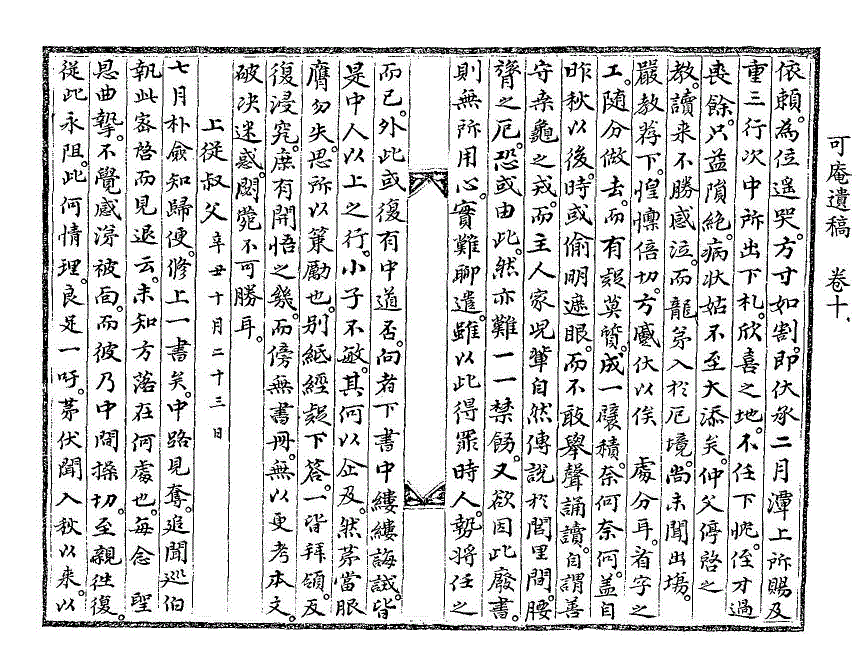 可庵遺稿 卷十
依賴。為位遥哭。方寸如割。即伏承二月潭上所賜及
重三行次中所出下札。欣喜之地。不任下忱。侄才過
喪餘。只益隕絕。病狀姑不至大添矣。仲父停啓之
教。讀来不勝感泣。而龍第入於厄境。尚未聞出塲。
嚴教荐下。惶懍倍切。方蹙伏以俟 處分耳。着字之
工。隨分做去。而有誤莫質。成一襞積。奈何奈何。盖自
昨秋以後。時或偷明遮眼。而不敢舉聲誦讀。自謂善
守桒龜之戒。而主人家児軰自然傳說於閭里間。腰
膂之厄。恐或由此。然亦難一一禁飭。又欲因此廢書。
則無所用心。實難聊遣。雖以此得罪時人。勢將任之
而已。外此或復有中道否。向者下書中縷縷誨誡。皆
是中人以上之行。小子不敏。其何以企及。然第當服
膺勿失。思所以策勵也。别紙經疑下答。一皆拜領。反
復浸究。庶有開悟之幾。而傍無書冊。無以更考本文。
破决迷惑。悶菀不可勝耳。
上從叔父 辛丑十月二十三日
七月朴僉知歸便。修上一書矣。中路見奪。追聞巡伯
執此密啓而見退云。未知方落在何處也。每念 聖
恩曲摯。不覺感涕被面。而彼乃中間操切。至親往復。
從此永阻。此何情理。良足一吁。第伏聞入秋以来。以